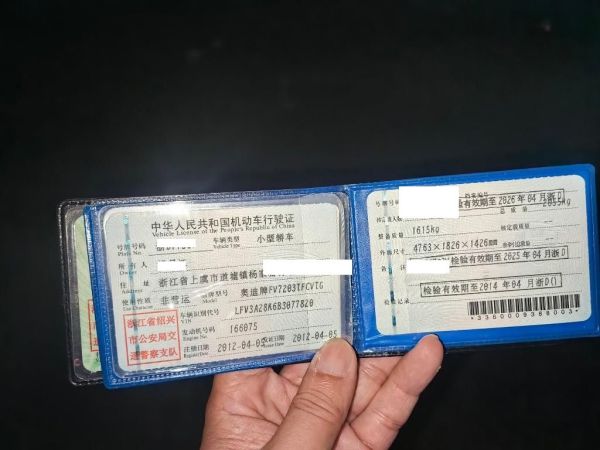 中华人民共和国机动车行驶证
Vehicle License of the People's Republic of China
号牌号码
Plate No.
车辆类型
Vehicle Type
小型轿车
所有人
Owner
住 址
Address
浙江省上虞市道墟镇杨
使用性质
Use Character
非营运
品牌型号
Model
奥迪牌FV7203TFCVTG
浙江省绍兴
市公安局交
通警察支队
车辆识别代号
VIN
LFV3A28K6B3077820
发动机号码
Engine No.
166075
注册日期
Register Date
2012-04-05
发证日期
Issue Date
2012-04-05
号牌号码
档案编号
检验有效期至 2026 年 04 月浙D
总质量
整备质量
1615kg
核定载质量
外廓尺寸
4763×1826×1426
检验有效期至 2025 年 04 月浙D
检验有效期至 2014 年 04 月浙D()
检验记录